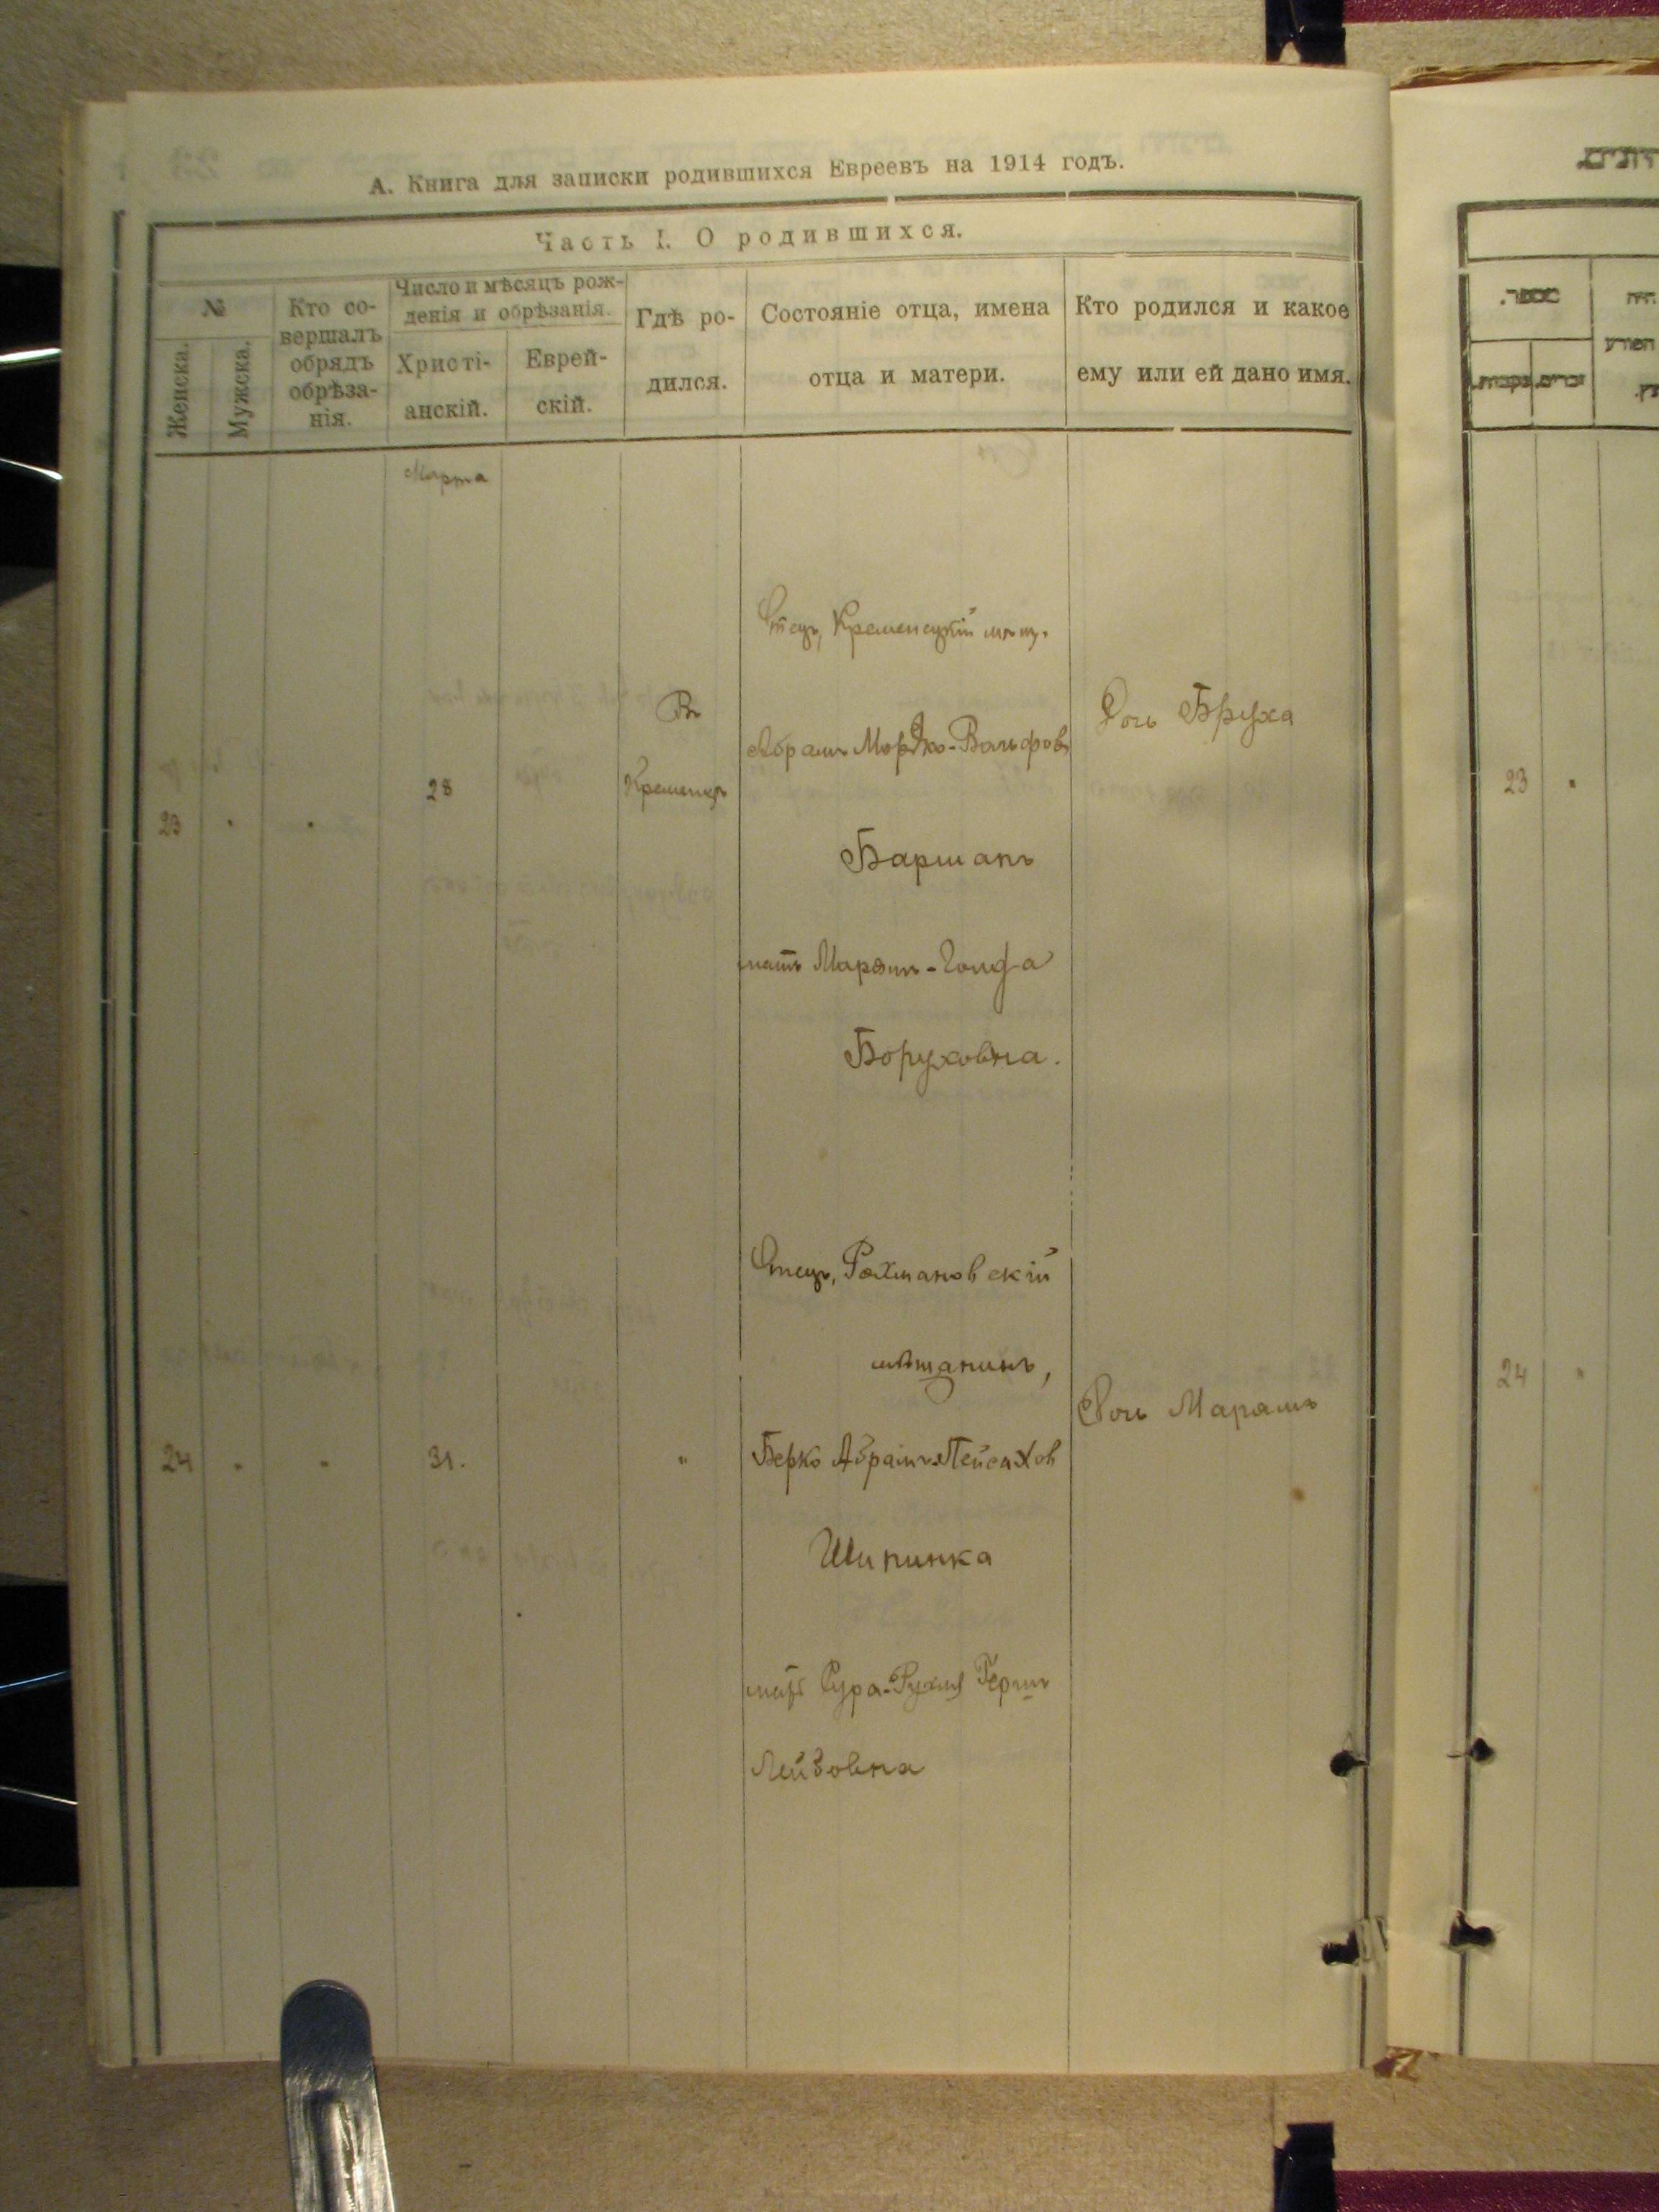 А. Книга для записки родившихся Евреевъ на 1914 годъ.
Часть I. О родившихся.
№
Женска.
Мужска.
Кто со-
вершалъ
обрядъ
обрѣза-
нія.
Число и мѣсяцъ рож-
денія и обрѣзанія.
Христі-
анскій.
Еврей-
скій.
Гдѣ ро-
дился.
Состояніе отца, имена
отца и матери.
Кто родился и какое
ему или ей дано имя.
Марта
23
28
Въ
Кременцѣ
Отецъ, Кременецкій мѣщ.
Абрамъ Мордко-Вольфовъ
Баршапъ
мать Марьямъ-Голда
Боруховна.
Дочь Бруха
24
31.
"
Отецъ, Рахмановскій
мѣщанинъ,
Берко Абрамъ-Пейсахов
Шипинка
мать Сура-Рухля Герш
Лейзовна
Дочь Марамъ
מספר.
זכרים.
נקבות.
23
24